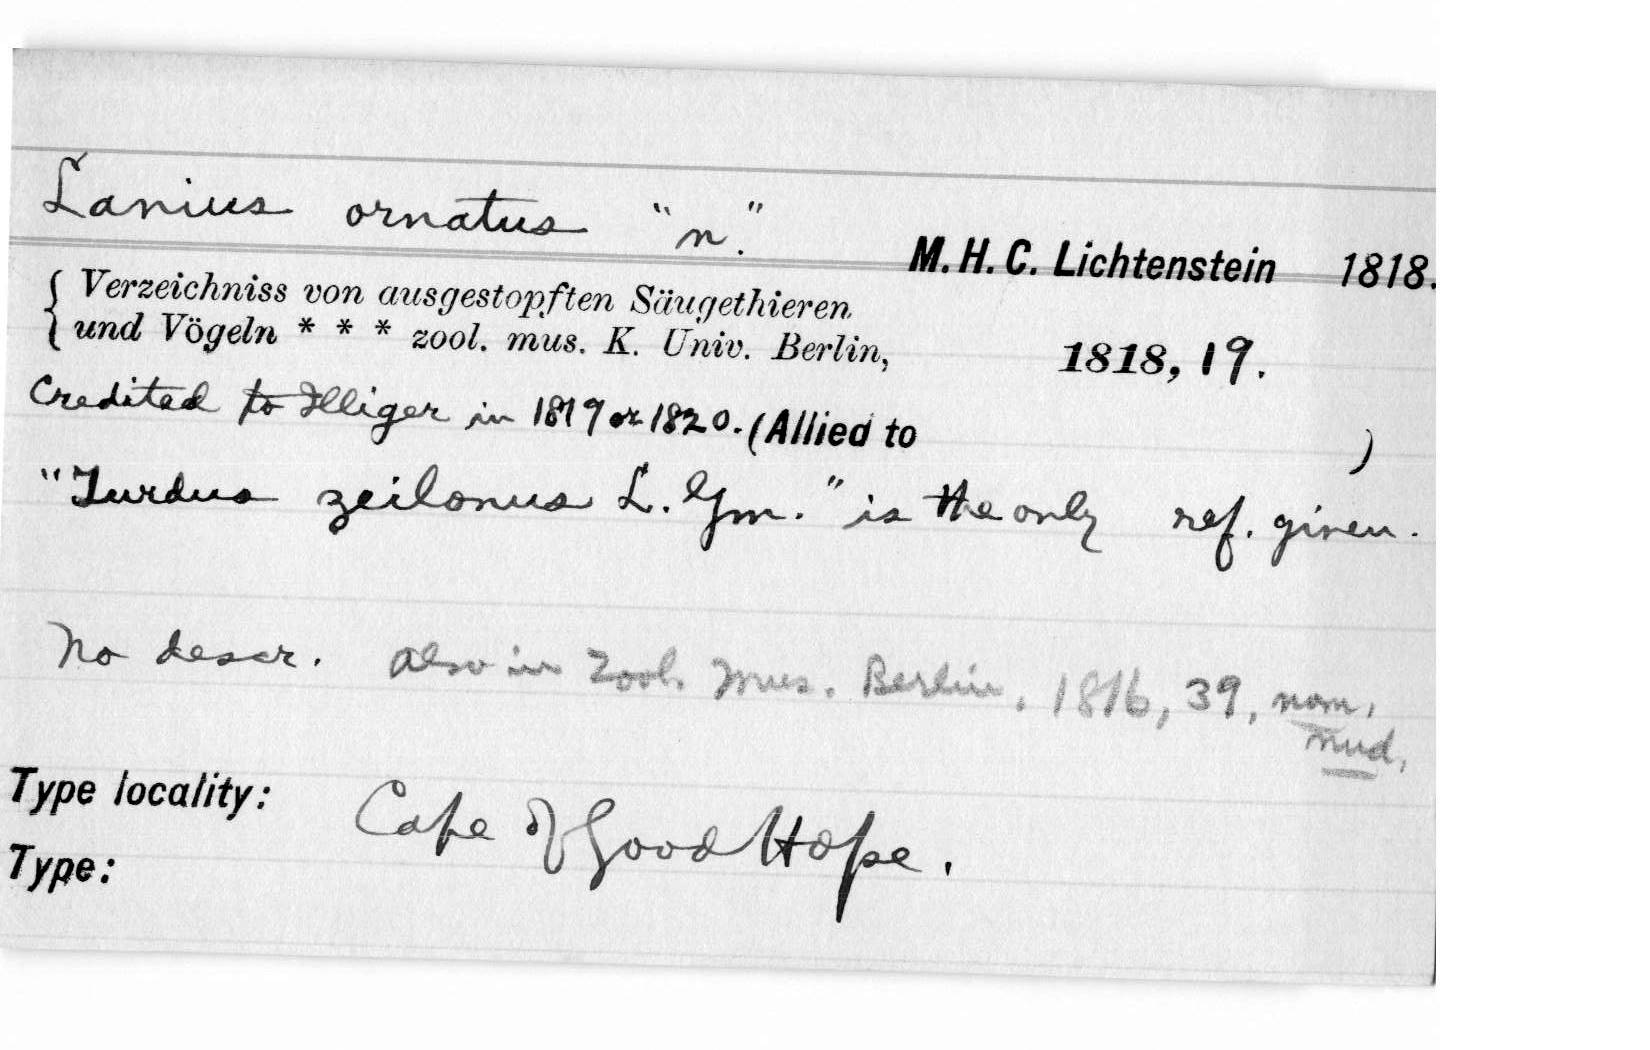 Lanius ornatus "n." M. H. C. Lichtenstein 1818.
{ Verzeichniss von ausgestopften Säugethieren
und Vögeln * * * zool. mus. K. Univ. Berlin, 1818, 19.
Credited to Illiger in 1819 or 1820. (Allied to )
"Turdus zeilonus L. Gm." is the only ref. given.
No descr. Also in Zool. Mus. Berlin, 1816, 39, nom.
nud.
Type locality: Cape of Good Hope.
Type: